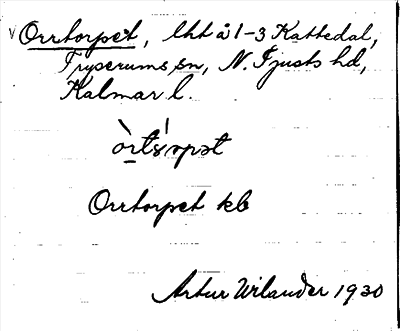 Orrtorpet, lht å 1-3 Kattedal,
Tryserums sn, N. Tjusts hd,
Kalmar l.
Orrtorpet kb
Artur Wilander 1930